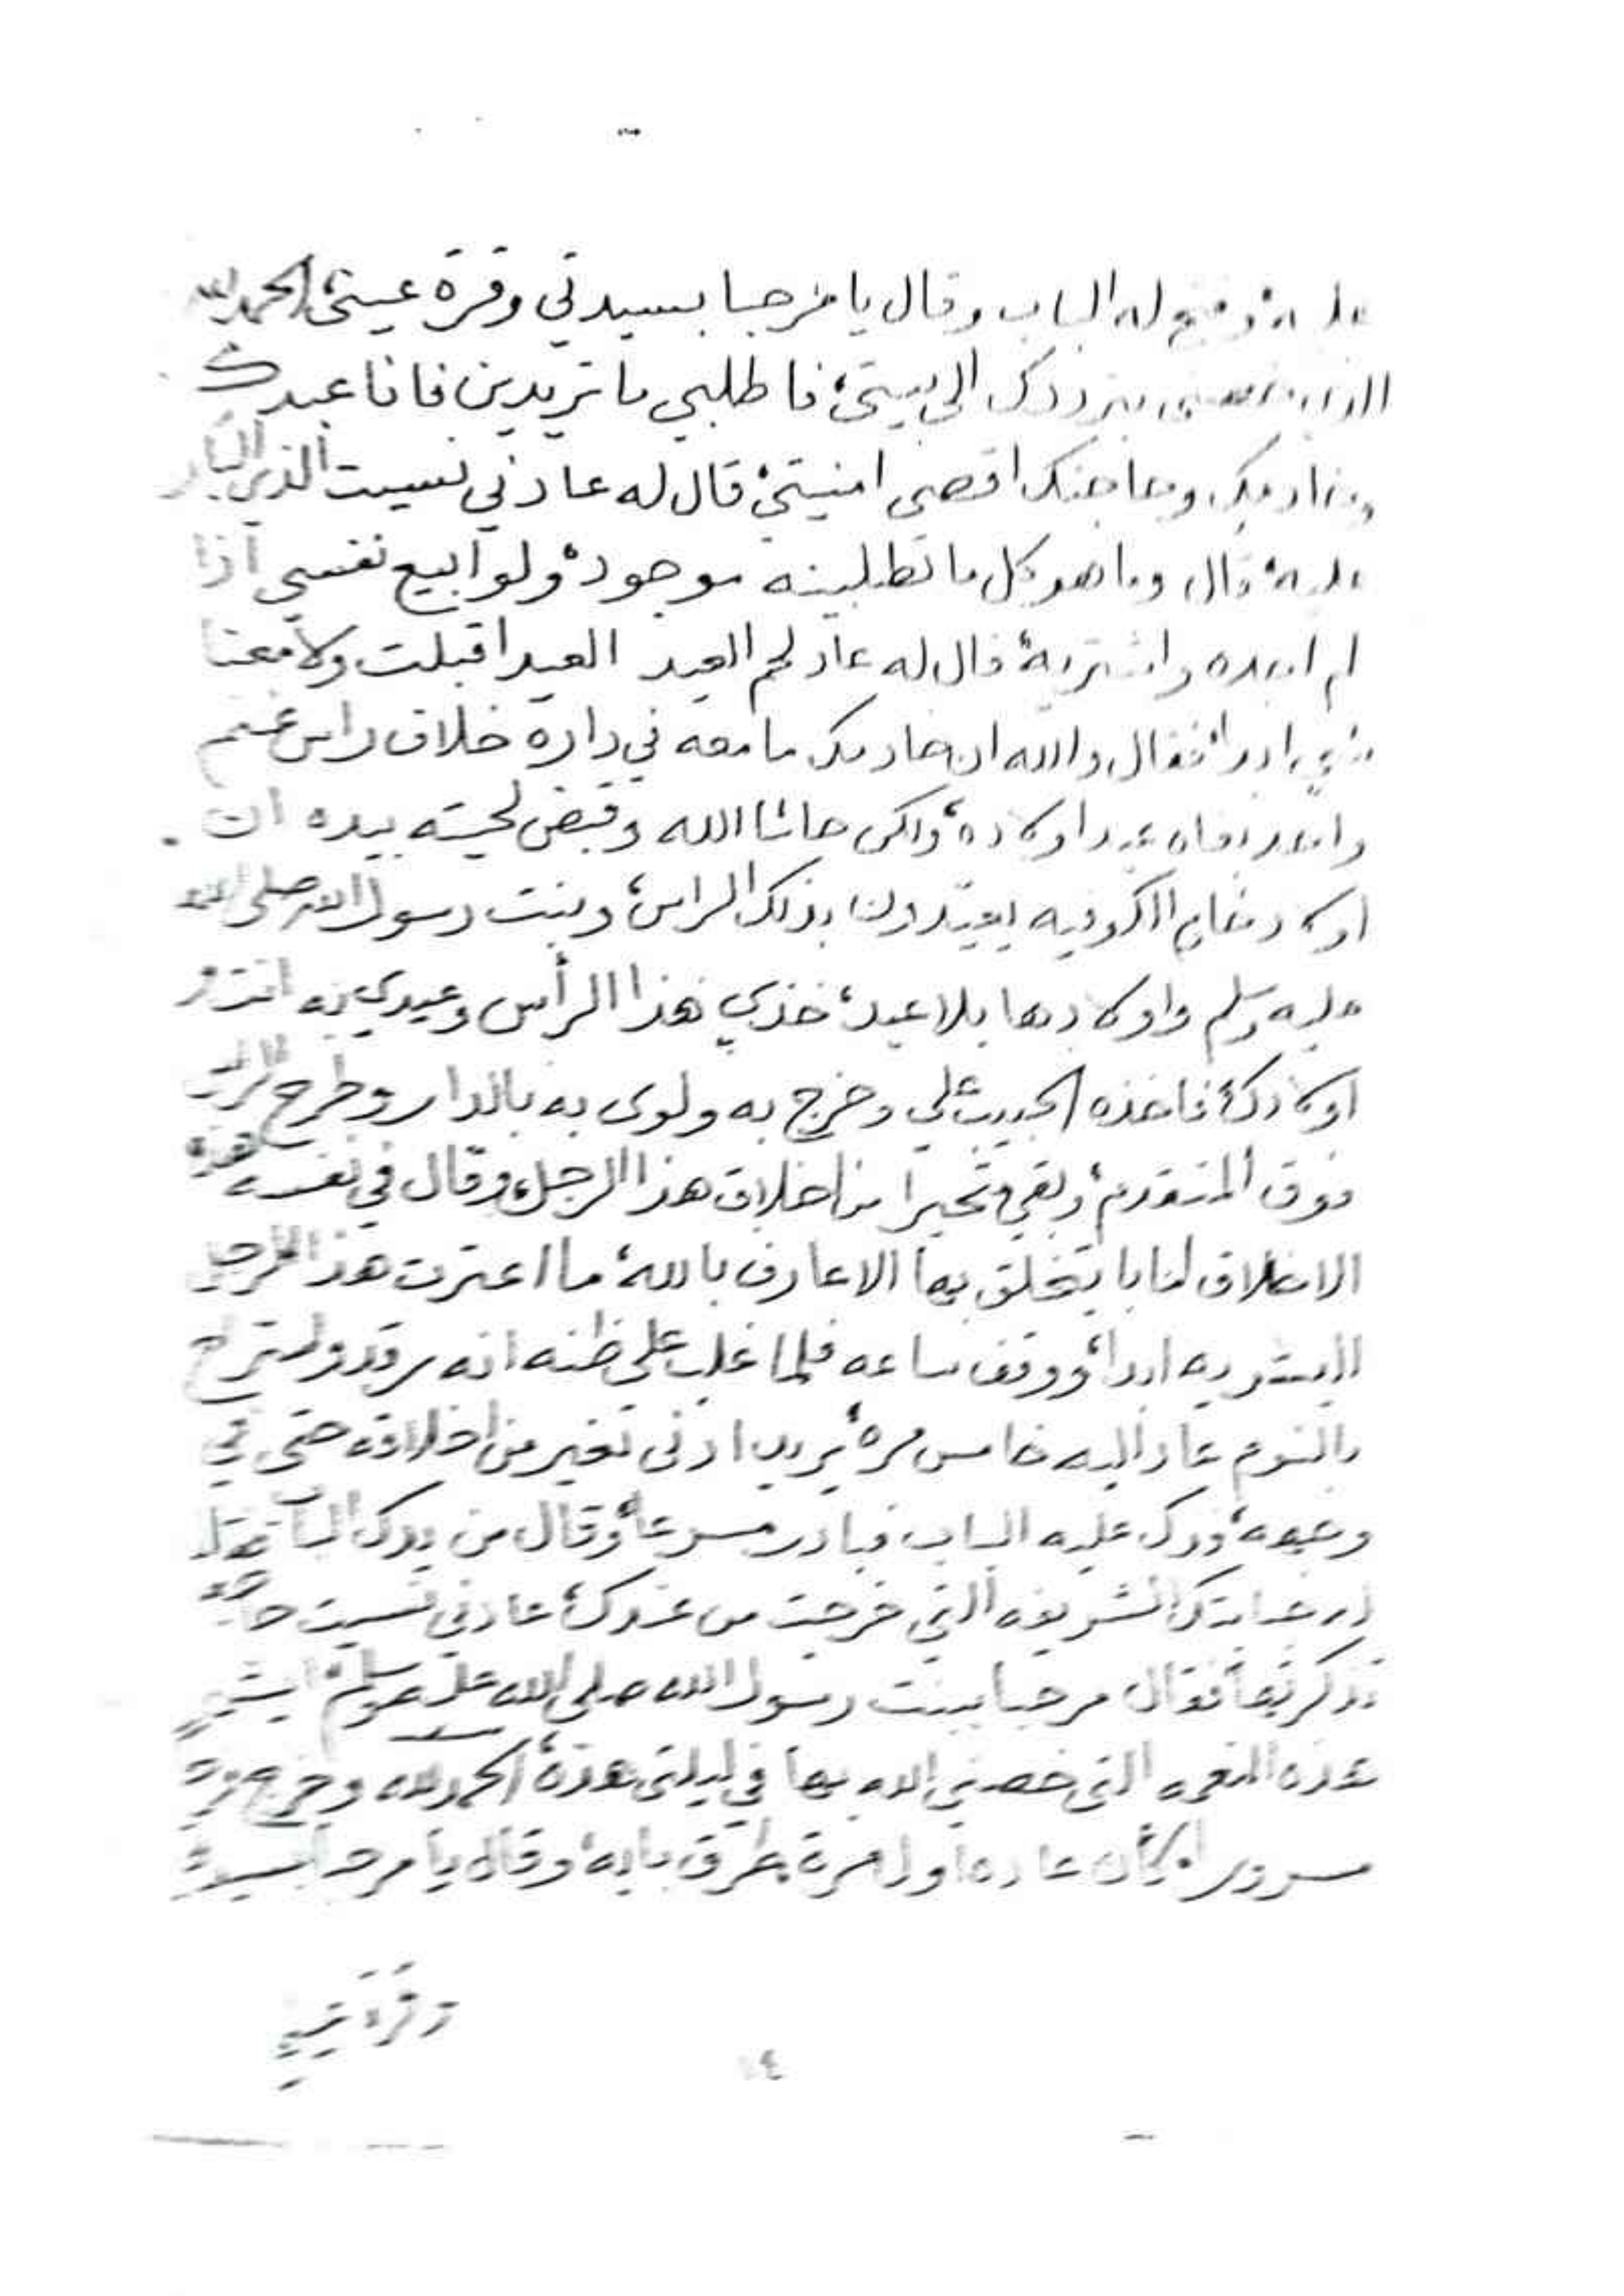 عليه، وفتح له الباب وقال يا مرحبا بسيدتي وقرة عيني، الحمد لله
الذي بترددك الى بيتي، فاطلبي ما تريدين فانا عبدك
وخادمك وحاجتك اقصى امنيتي، قال له عادني نسيت الذي
عليه، قال وما هو كل ما تطلبينه موجود، ولو ابيع نفسي اذا
لم اجده واشتريه، قال له عاد لحم العيد العيد اقبلت ولا معنا
شيء ابدا، فقال والله ان خادمك ما معه في داره خلاف راس غنم
واحد اولاده، ولكن حاشا الله وقبض لحيته بيده ان
اولاد يعيّدون بذلك الراس، وبنت رسول الله صلى الله
عليه وسلم واولادها بلا عيد، خذي هذا الرأس وعيدي به انت و
اولادك، فاخذه الحبيب علي وخرج به ولوى به بالدار وطرح
فوق المتقدم، وبقي متحيرا من اخلاق هذا الرجل، وقال في نفسه هذه
الاخلاق ما يتخلق بها الا عارف بالله، ما اعترت هذا الرجل
البشريه ابدا، ووقف ساعه فلما غلب على ظنه انه رقد واستراح
بالنوم عاد اليه خامس مرة، يريد ادنى تغير من اخلاقه حتى في
وجهه، ودك عليه الباب فبادر مسرعا، وقال من يدك الباب
الشريفه التي خرجت من عندك، عادني نسيت حاجة
تذكرتها، فقال مرحبا ببنت رسول الله صلى الله عليه وسلم،
هذه النعمه التي خصني الله بها في ليلتي هذه، الحمد لله وخرج
مسرورا، كأن عاده اول مرة طرق بابه، وقال يا مرحبا بسيدتي
وقرة عيني
١٤